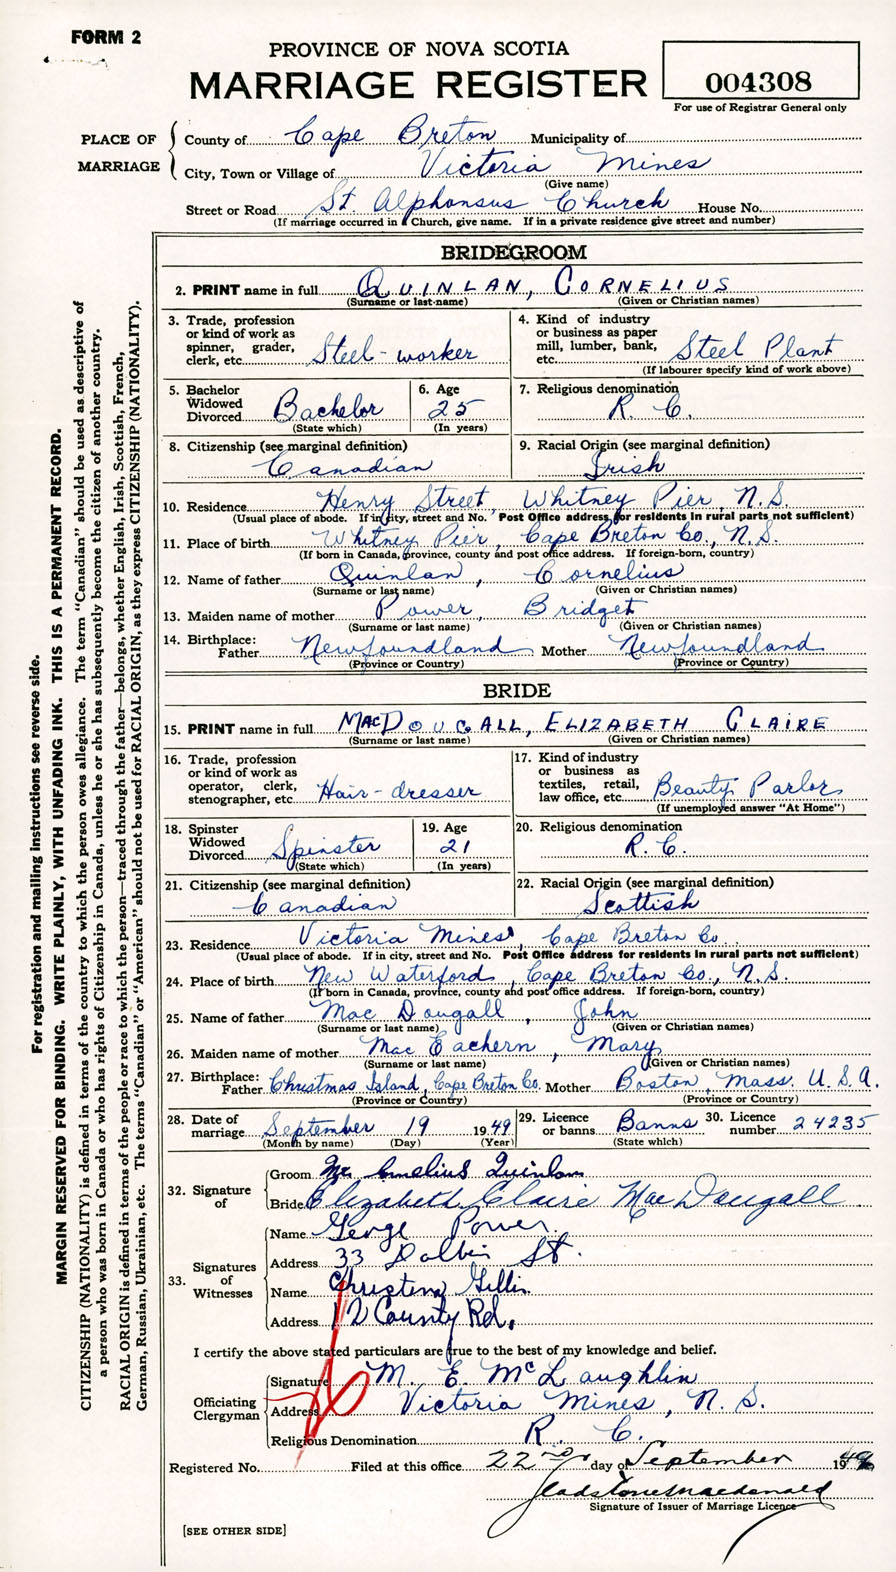 FORM 2
PROVINCE OF NOVA SCOTIA
MARRIAGE REGISTER
004308
For use of Registrar General only
PLACE OF MARRIAGE
County of Cape Breton Municipality of
City, Town or Village of Victoria Mines
(Give name)
Street or Road St. Alphonsus Church House No.
(If marriage occurred in a Church, give name. If in a private residence give street and number)
BRIDEGROOM
2. PRINT name in full QUINLAN, CORNELIUS
(Surname or last name) (Given or Christian names)
3. Trade, profession or kind of work as spinner, grader, clerk, etc. Steel-worker
4. Kind of industry or business as paper mill, lumber, bank, etc. Steel Plant
(If labourer specify kind of work above)
5. Bachelor Widowed Divorced Bachelor
(State which)
6. Age 25
(In years)
7. Religious denomination R. C.
8. Citizenship (see marginal definition) Canadian
9. Racial Origin (see marginal definition) Irish
10. Residence Henry Street, Whitney Pier, N.S.
(Usual place of abode. If in city, street and No. Post Office address for residents in rural parts not sufficient)
11. Place of birth Whitney Pier, Cape Breton Co., N.S.
(If born in Canada, province, county and post office address. If foreign-born, country)
12. Name of father Quinlan, Cornelius
(Surname or last name) (Given or Christian names)
13. Maiden name of mother Power, Bridget
(Surname or last name) (Given or Christian names)
14. Birthplace: Father Newfoundland Mother Newfoundland
(Province or Country) (Province or Country)
BRIDE
15. PRINT name in full MACDOUGALL, ELIZABETH CLAIRE
(Surname or last name) (Given or Christian names)
16. Trade, profession or kind of work as operator, clerk, stenographer, etc. Hair-dresser
17. Kind of industry or business as textiles, retail, law office, etc. Beauty Parlor
(If unemployed answer "At Home")
18. Spinster Widowed Divorced Spinster
(State which)
19. Age 21
(In years)
20. Religious denomination R. C.
21. Citizenship (see marginal definition) Canadian
22. Racial Origin (see marginal definition) Scottish
23. Residence Victoria Mines, Cape Breton Co
(Usual place of abode. If in city, street and No. Post Office address for residents in rural parts not sufficient)
24. Place of birth New Waterford, Cape Breton Co., N.S.
(If born in Canada, province, county and post office address. If foreign-born, country)
25. Name of father Mac Dougall, John
(Surname or last name) (Given or Christian names)
26. Maiden name of mother Mac Eachern, Mary
(Surname or last name) (Given or Christian names)
27. Birthplace: Father Christmas Island, Cape Breton Co. Mother Boston, Mass. U.S.A.
(Province or Country) (Province or Country)
28. Date of marriage September 19 1949
(Month by name) (Day) (Year)
29. Licence or banns Banns
(State which)
30. Licence number 24235
32. Signature of
Groom Mr. Cornelius Quinlan
Bride Elizabeth Claire MacDougall
33. Signatures of Witnesses
Name George Power
Address 33 Dolbin St.
Name Christena Gillis
Address 12 County Rd.
I certify the above stated particulars are true to the best of my knowledge and belief.
Officiating Clergyman
Signature M. E. McLaughlin
Address Victoria Mines, N.S.
Religious Denomination R. C.
Registered No. Filed at this office 22nd day of September 1949
Gladstone Macdonald
Signature of Issuer of Marriage Licence
[SEE OTHER SIDE]
For registration and mailing instructions see reverse side.
MARGIN RESERVED FOR BINDING. WRITE PLAINLY, WITH UNFADING INK. THIS IS A PERMANENT RECORD.
CITIZENSHIP (NATIONALITY) is defined in terms of the country to which the person owes allegiance. The term "Canadian" should be used as descriptive of
a person who was born in Canada or who has rights of Citizenship in Canada, unless he or she has subsequently become the citizen of another country.
RACIAL ORIGIN is defined in terms of the people or race to which the person—traced through the father—belongs, whether English, Irish, Scottish, French,
German, Russian, Ukrainian, etc. The terms "Canadian" or "American" should not be used for RACIAL ORIGIN, as they express CITIZENSHIP (NATIONALITY).